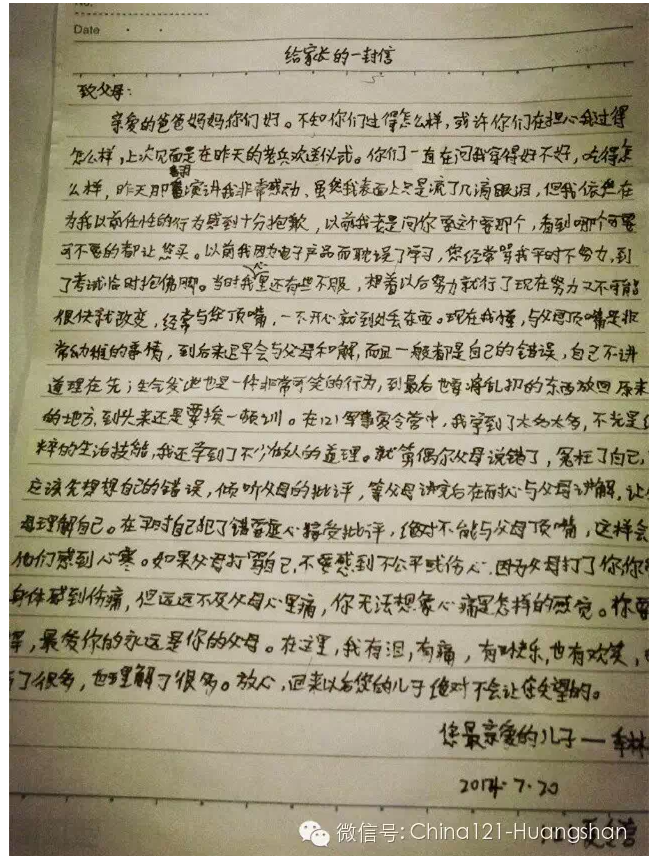 No.
Date
给家长的一封信
致父母：
亲爱的爸爸妈妈你们好。不知你们过得怎么样，或许你们在担心我过得
怎么样，上次见面是在昨天的老兵欢送仪式。你们一直在问我穿得好不好，吃得怎
么样，昨天那番演讲我非常感动，虽然我表面上只是流了几滴眼泪，但我依然在
为我以前任性的行为感到十分抱歉，以前我老是问你要这个要那个，看到哪个可要
可不要的都让您买。以前我因为电子产品而耽误了学习，您经常骂我平时不努力，到
了考试临时抱佛脚。当时我心里还有些不服，想着以后努力就行了现在努力又不可能
很快就改变，经常与您顶嘴，一不开心就到处丢东西。现在我懂，与父母顶嘴是非
常幼稚的事情，到后来迟早会与父母和解，而且一般都是自己的错误，自己不讲
道理在先；生气发泄也是一件非常可笑的行为，到最后也要将乱扔的东西放回原来
的地方，到头来还是要挨一顿训。在121军事夏令营中，我学到了太多太多，不光是
粹的生活技能，我还学到了不少做人的道理。就算偶尔父母说错了，冤枉了自己，
应该先想想自己的错误，倾听父母的批评，等父母讲完后在耐心与父母讲解，让
母理解自己。在平时自己犯了错要虚心接受批评，绝对不能与父母顶嘴，这样会
他们感到心寒。如果父母打骂自己，不要感到不公平或伤心，因为父母打了你你
身体感到伤痛，但远远不及父母心里痛，你无法想象心痛是怎样的感觉。你要
，最爱你的永远是你的父母。在这里，我有泪，有痛，有快乐，也有欢笑，
了很多，也理解了很多。放心，回来以后您的儿子绝对不会让您失望的。
您最亲爱的儿子——林
2014.7.20
微信号: China121-Huangshan
夏令营